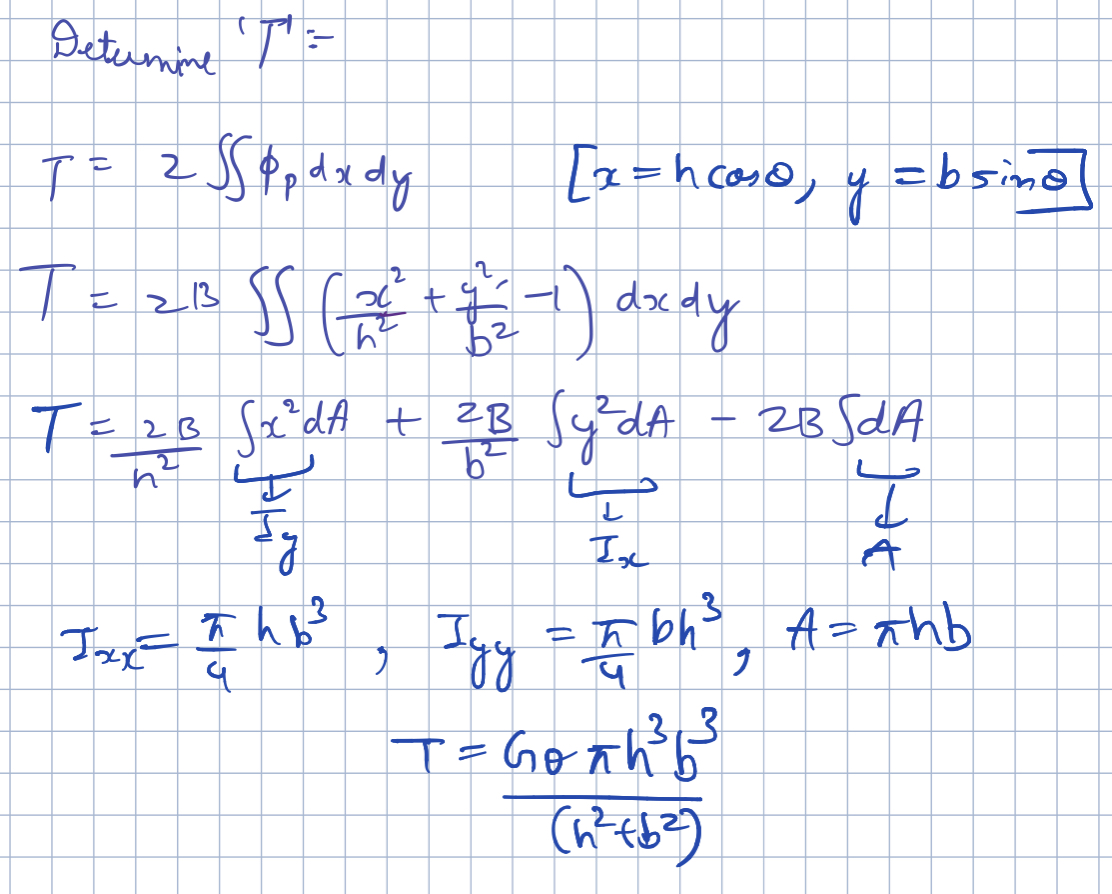 Determine 'T' =
T = 2 ∬ ϕₚ dx dy [x = h cosθ, y = b sinθ]
T = 2B ∬ (x²/h² + y²/b² - 1) dx dy
T = 2B/h² ∫x²dA + 2B/b² ∫y²dA - 2B ∫dA
↓ ↓ ↓
Iy Ix A
Ixx = π/4 hb³, Iyy = π/4 bh³, A = πhb
T = Gθπh³b³/(h²+b²)